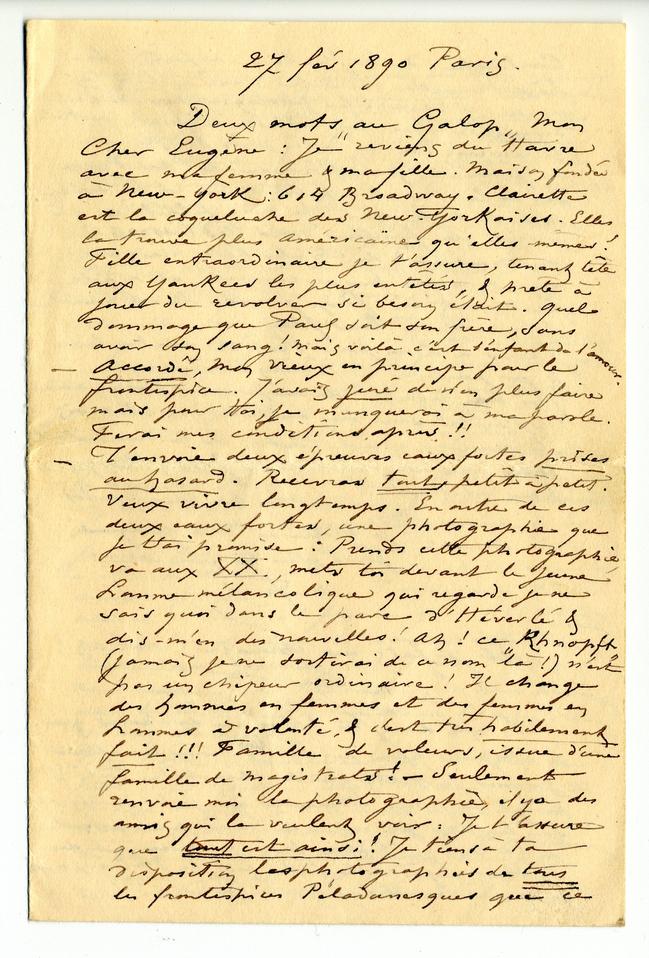 27 fév 1890 Paris.
Deux mots au Galop, Mon
Cher Eugène : Je reviens du Havre
avec ma femme & ma fille. Maison fondée
à New-York : 614 Broadway. Clairette
est la coqueluche des New Yorkaises. Elles
la trouve plus américaine qu'elles mêmes !
Fille extraordinaire je t'assure, tenant tête
aux Yankees les plus entêtés, & prête à
jouer du revolver si besoin était. Quel
dommage que Paul soit son frère, sans
avoir son sang ! Mais voilà c'est l'enfant de l'amour.
– Accordé, mon vieux en principe pour le
frontispice. J'avais juré de n'en plus faire
mais pour toi, je manquerai à ma parole.
Ferai mes conditions après !!
– T'envoie deux épreuves eaux fortes prises
au hasard. Recevras tout, petit à petit.
Veux vivre longtemps. En outre de ces
deux eaux fortes, une photographie que
je t'ai promise : Prends cette photographie
va aux XX, mets toi devant le jeune
homme mélancolique qui regarde je ne
sais quoi dans le parc d'Héverlé &
dis-m'en des nouvelles ! Ah ! ce "Khnopff"
(jamais je ne sortirai de ce nom là !) n'est
pas un chipeur ordinaire ! Il change
des hommes en femmes et des femmes en
hommes à volonté, & c'est très habilement
fait !!! Famille de voleurs, issue d'une
famille de magistrats ! – Seulement
renvoie moi la photographie, il y a des
amis qui la veulent voir : Je t'assure
que tout est ainsi ! Je tiens à ta
disposition les photographies de tous
les frontispices Péladanesques que ce